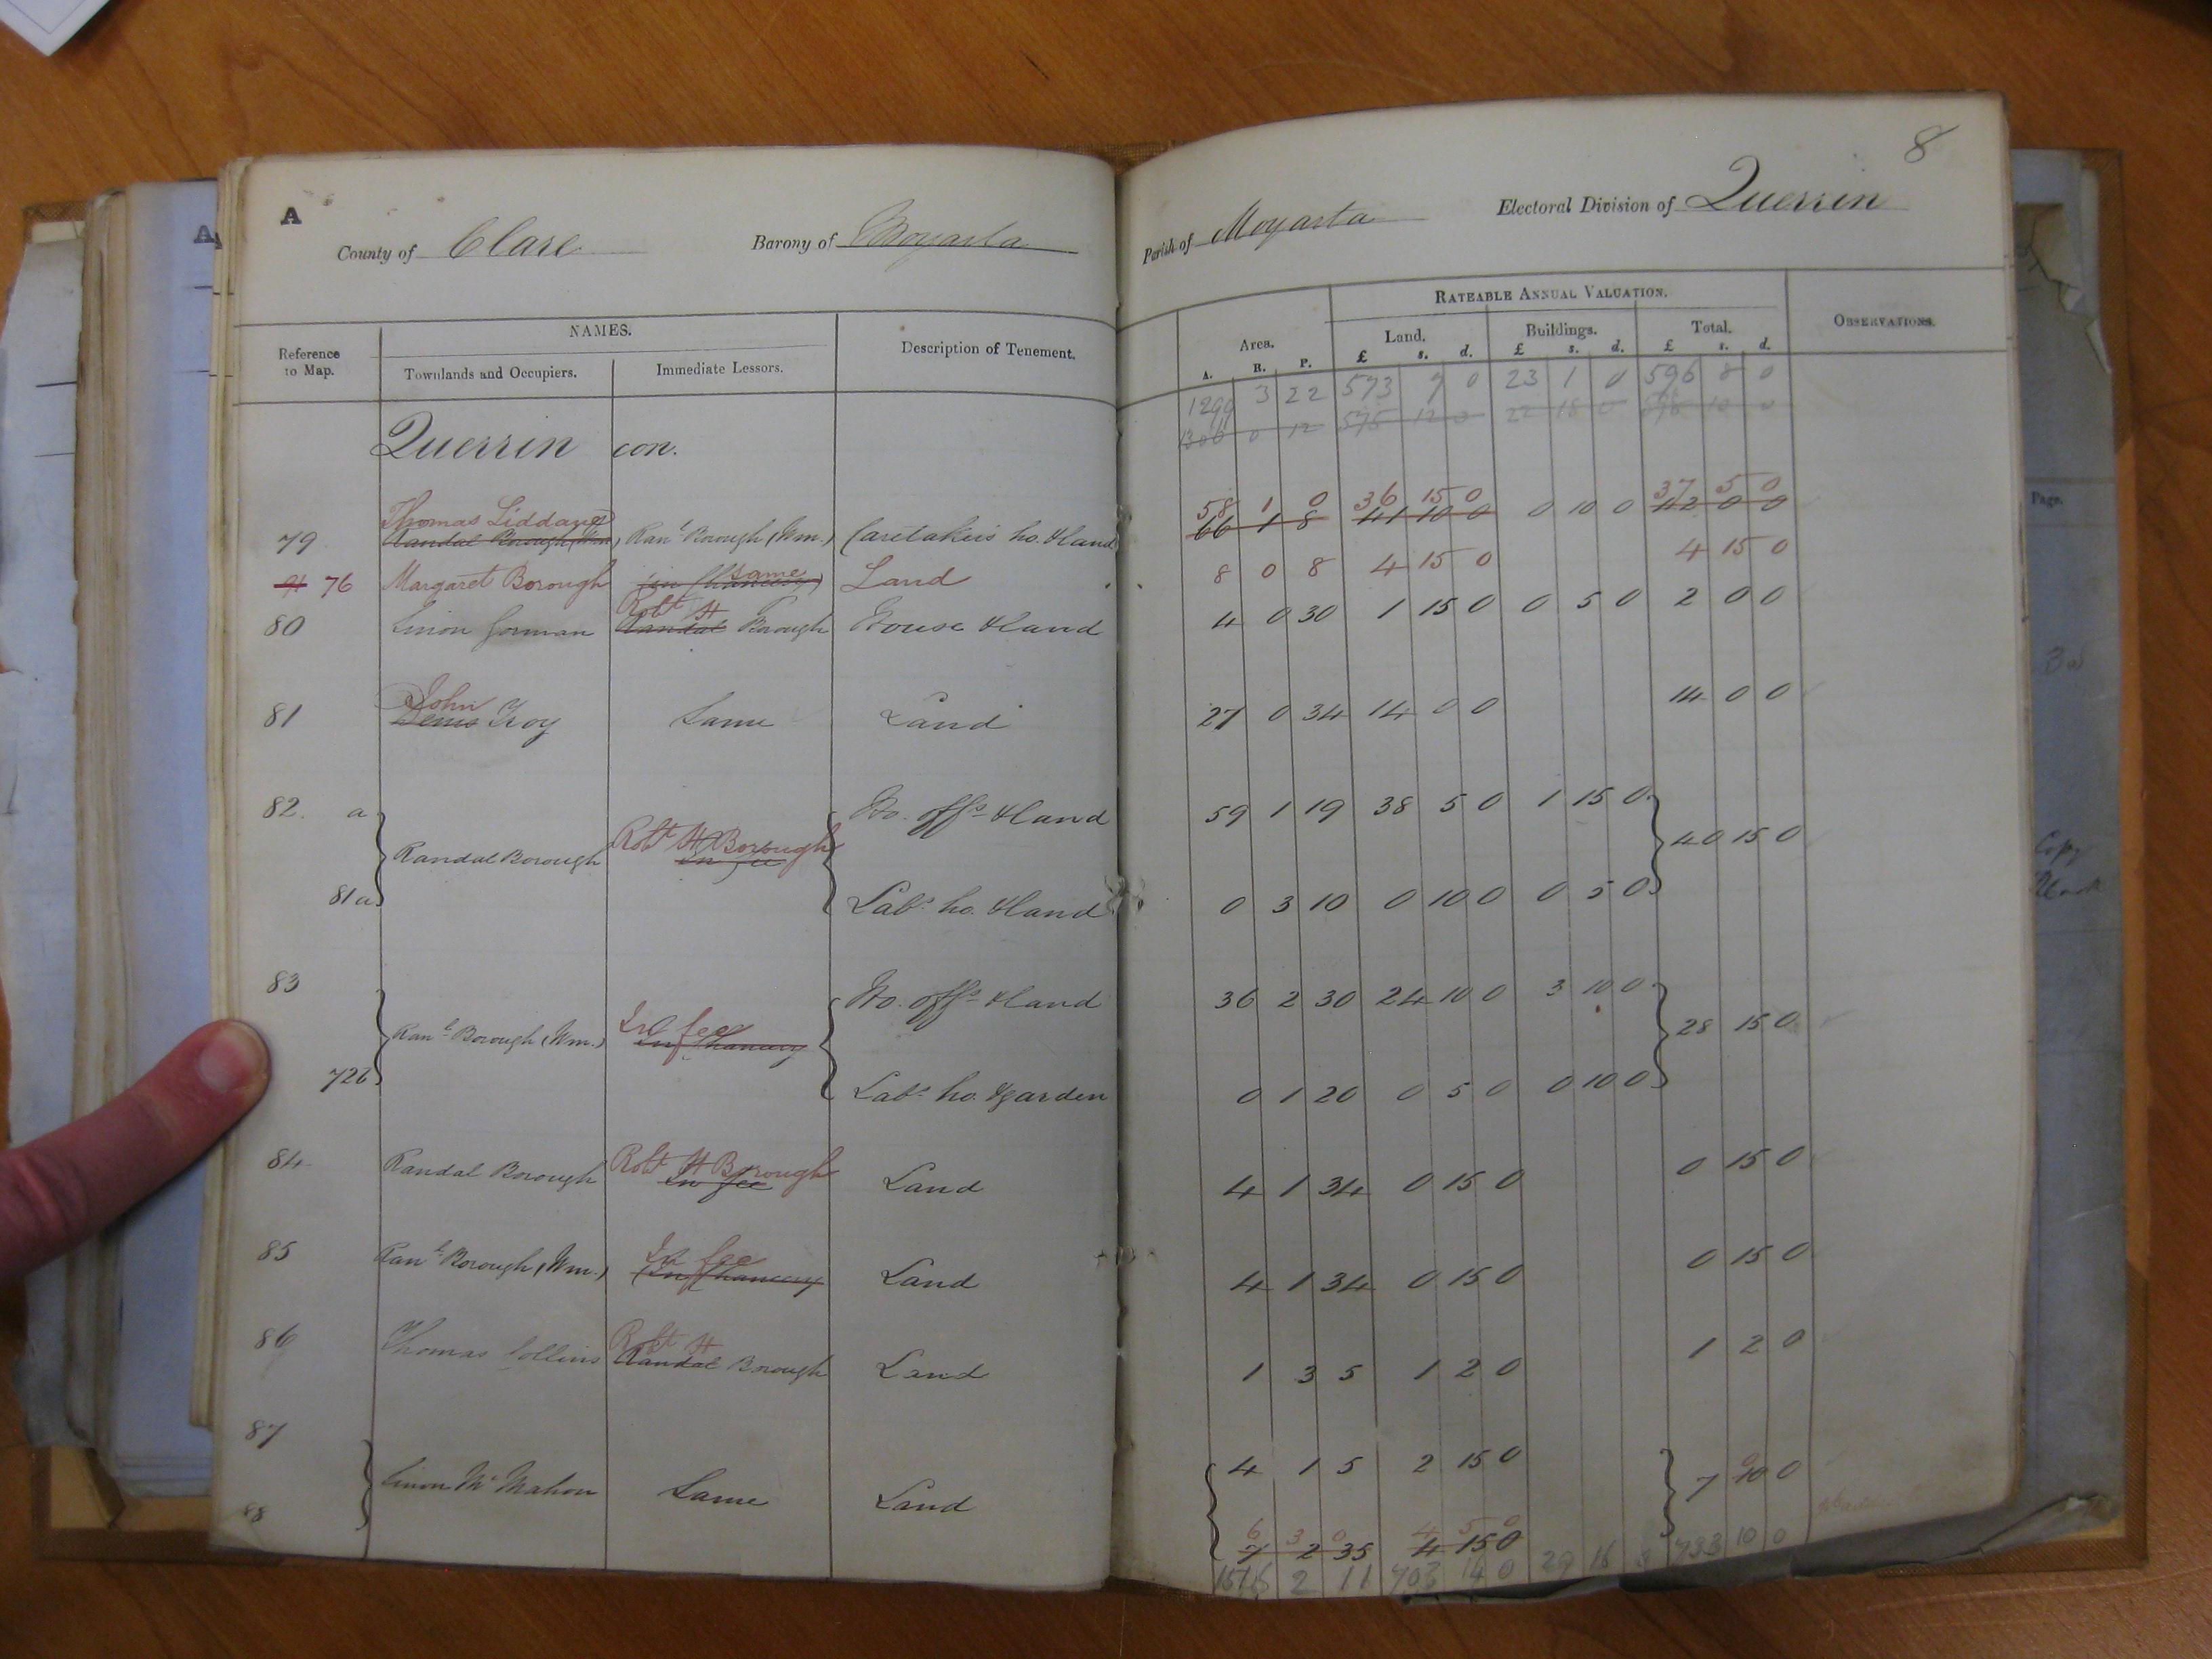 8
A
County of Clare Barony of Moyarta Parish of Moyarta Electoral Division of Querrin
Reference to Map. NAMES. Description of Tenement. Area. RATEABLE ANNUAL VALUATION. OBSERVATIONS.
Townlands and Occupiers. Immediate Lessors. Land. Buildings. Total.
A. R. P. £ s. d. £ s. d. £ s. d.
1299 3 22 573 7 0 23 1 0 596 8 0
1306 0 12 575 12 0 22 18 0 598 10 0
Querrin con.
Thomas Liddane 58 1 0 36 15 0 37 5 0
79 Randal Borough (Wm.) Ranl. Borough (Wm.) Caretaker's ho. & land 66 1 8 41 10 0 0 10 0 42 0 0
same
76 Margaret Borough (in Chancery) Land 8 0 8 4 15 0 4 15 0
Robt H
80 Sinon Gorman Randal Borough House & land 4 0 30 1 15 0 0 5 0 2 0 0
John
81 Denis Troy Same Land 27 0 34 14 0 0 14 0 0
82 a Ho. offs. & land 59 1 19 38 5 0 1 15 0
Randal Borough Robt H Borough In fee 40 15 0
81a Labr. ho. & land 0 3 10 0 10 0 0 5 0
83 Ho. offs. & land 36 2 30 24 10 0 3 10 0
Ranl. Borough (Wm.) In fee In Chancery 28 15 0
72b Labr. ho. & garden 0 1 20 0 5 0 0 10 0
Robt H Borough
84 Randal Borough In fee Land 4 1 34 0 15 0 0 15 0
In fee
85 Ranl. Borough (Wm.) (In Chancery Land 4 1 34 0 15 0 0 15 0
Robt H
86 Thomas Collins Randal Borough Land 1 3 5 1 2 0 1 2 0
87 4 1 5 2 15 0
Sinon Mc Mahon Same Land 7 10 0
6 3 0 4 5 0
88 7 2 35 4 15 0
2 11 703 14 0 29 16 0 733 10 0
Page.
Copy